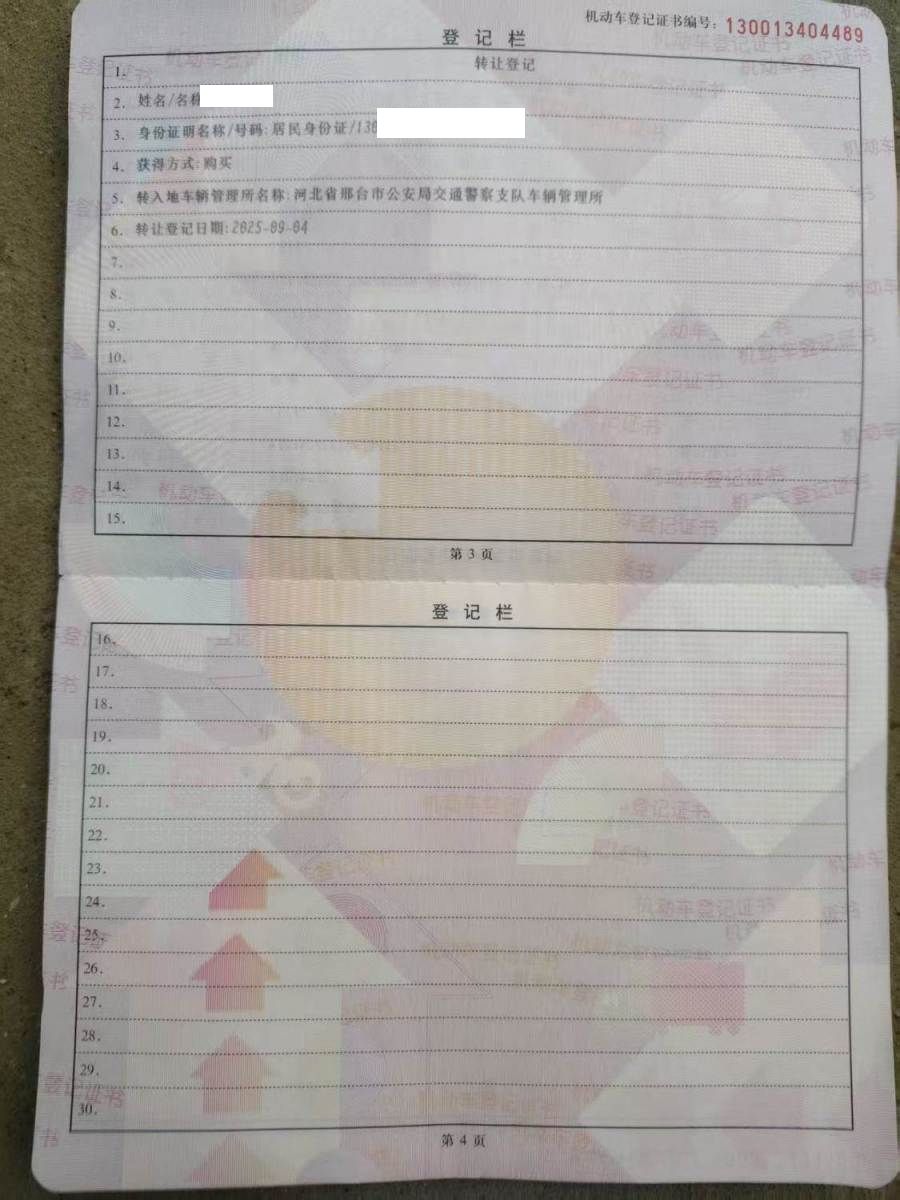 机动车登记证书编号：130013404489
登记栏
1. 转让登记
2. 姓名/名称
3. 身份证明名称/号码:居民身份证/130
4. 获得方式:购买
5. 转入地车辆管理所名称:河北省邢台市公安局交通警察支队车辆管理所
6. 转让登记日期:2025-09-04
7.
8.
9.
10.
11.
12.
13.
14.
15.
第 3 页
登记栏
16.
17.
18.
19.
20.
21.
22.
23.
24.
25.
26.
27.
28.
29.
30.
第 4 页